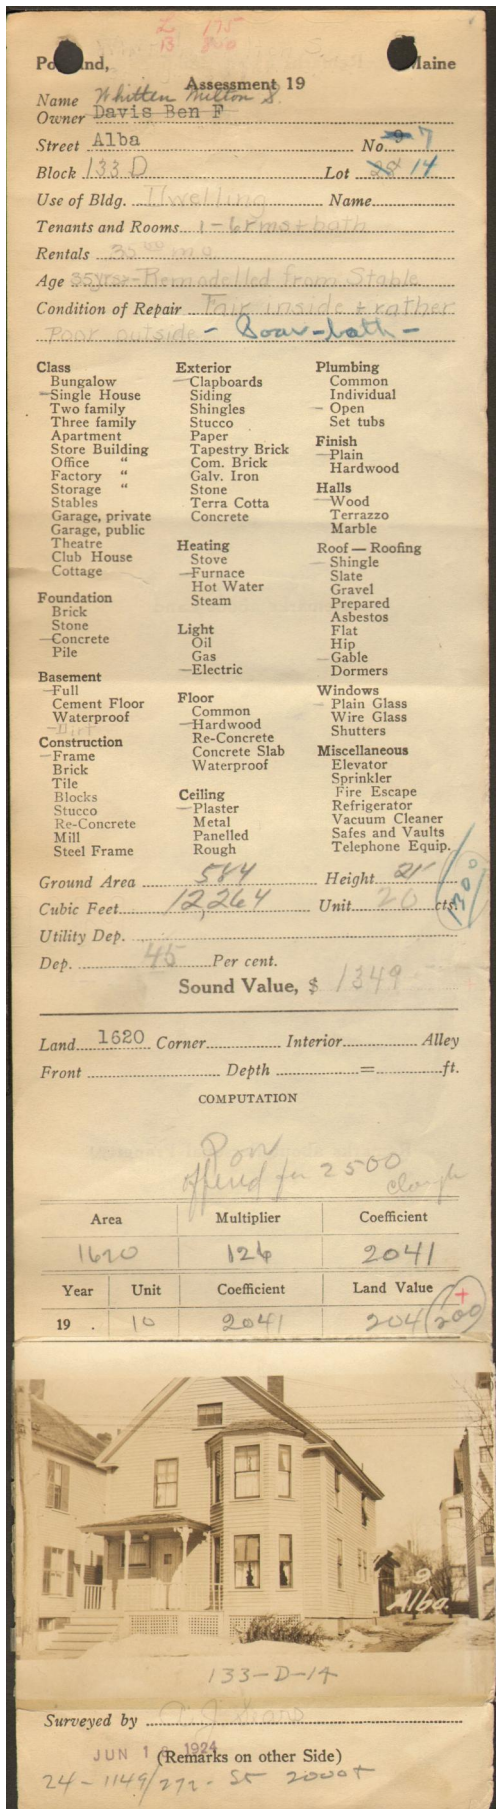 L 175
B 800
Portland, Maine
Assessment 19
Name Whitten Milton S.
Owner Davis Ben F
Street Alba No. 9 7
Block 133 D Lot 28 14
Use of Bldg. Dwelling Name
Tenants and Rooms 1-6 rms + bath
Rentals 35 00 mo
Age 35 yrs - Remodelled from Stable
Condition of Repair Fair inside & rather
Poor outside -
Class
Bungalow
Single House
Two family
Three family
Apartment
Store Building
Office "
Factory "
Storage "
Stables
Garage, private
Garage, public
Theatre
Club House
Cottage
Foundation
Brick
Stone
Concrete
Pile
Basement
Full
Cement Floor
Waterproof
Dirt
Construction
Frame
Brick
Tile
Blocks
Stucco
Re-Concrete
Mill
Steel Frame
Exterior
Clapboards
Siding
Shingles
Stucco
Paper
Tapestry Brick
Com. Brick
Galv. Iron
Stone
Terra Cotta
Concrete
Heating
Stove
Furnace
Hot Water
Steam
Light
Oil
Gas
Electric
Floor
Common
Hardwood
Re-Concrete
Concrete Slab
Waterproof
Ceiling
Plaster
Metal
Panelled
Rough
Plumbing
Common
Individual
Open
Set tubs
Finish
Plain
Hardwood
Halls
Wood
Terrazzo
Marble
Roof — Roofing
Shingle
Slate
Gravel
Prepared
Asbestos
Flat
Hip
Gable
Dormers
Windows
Plain Glass
Wire Glass
Shutters
Miscellaneous
Elevator
Sprinkler
Fire Escape
Refrigerator
Vacuum Cleaner
Safes and Vaults
Telephone Equip.
Ground Area 584 Height 21'
Cubic Feet 12,264 Unit 20 cts.
1300
Utility Dep.
Dep. 45 Per cent.
Sound Value, $ 1349
Land 1620 Corner Interior Alley
Front Depth = ft.
COMPUTATION
offered for 2500
Clough
Area Multiplier Coefficient
1620 126 2041
Year Unit Coefficient Land Value
19 . 10 2041 204 200 +
9
Alba.
133-D-14
Surveyed by
JUN 1 1924 (Remarks on other Side)
24 - 1149/272 - St 2000+